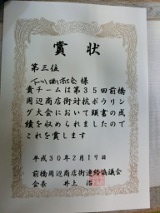 賞状
第三位
様
貴チームは第35回前橋
周辺商店街対抗ボウリン
グ大会において頭書の成
績を収められましたので
これを賞します
平成30年2月17日
前橋周辺商店街連絡協議会
会長 井上 浩